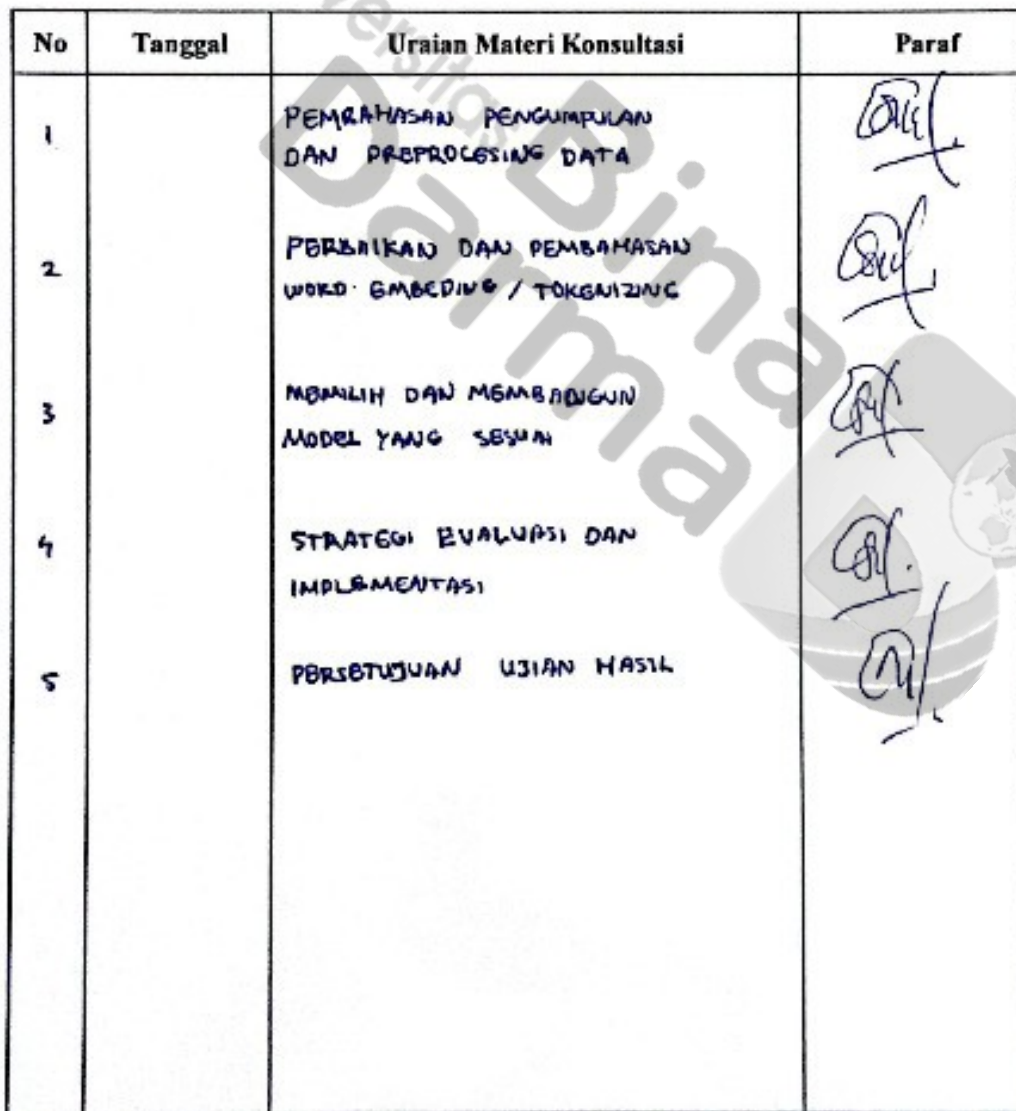 No Tanggal Uraian Materi Konsultasi Paraf
1 PEMBAHASAN PENGUMPULAN
DAN PREPROCESING DATA
2 PERBAIKAN DAN PEMBAHASAN
WORD EMBEDING / TOKENIZING
3 MEMILIH DAN MEMBANGUN
MODEL YANG SESUAI
4 STRATEGI EVALUASI DAN
IMPLEMENTASI
5 PERSETUJUAN UJIAN HASIL
Universitas
Bina
Darma